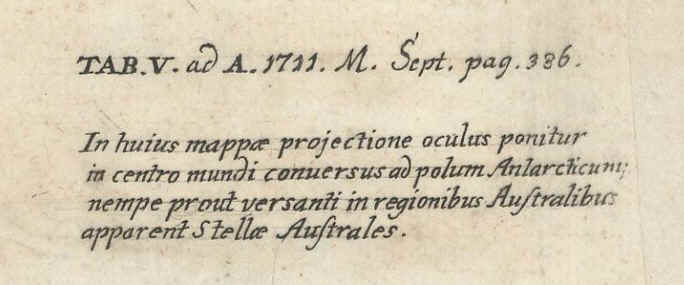 TAB.V. ad A. 1711. M. Sept. pag. 386.
In huius mappæ projectione oculus ponitur
in centro mundi conuersus ad polum Antarcticum;
nempe prout versanti in regionibus Auſtralibus
apparent Stellæ Auſtrales.